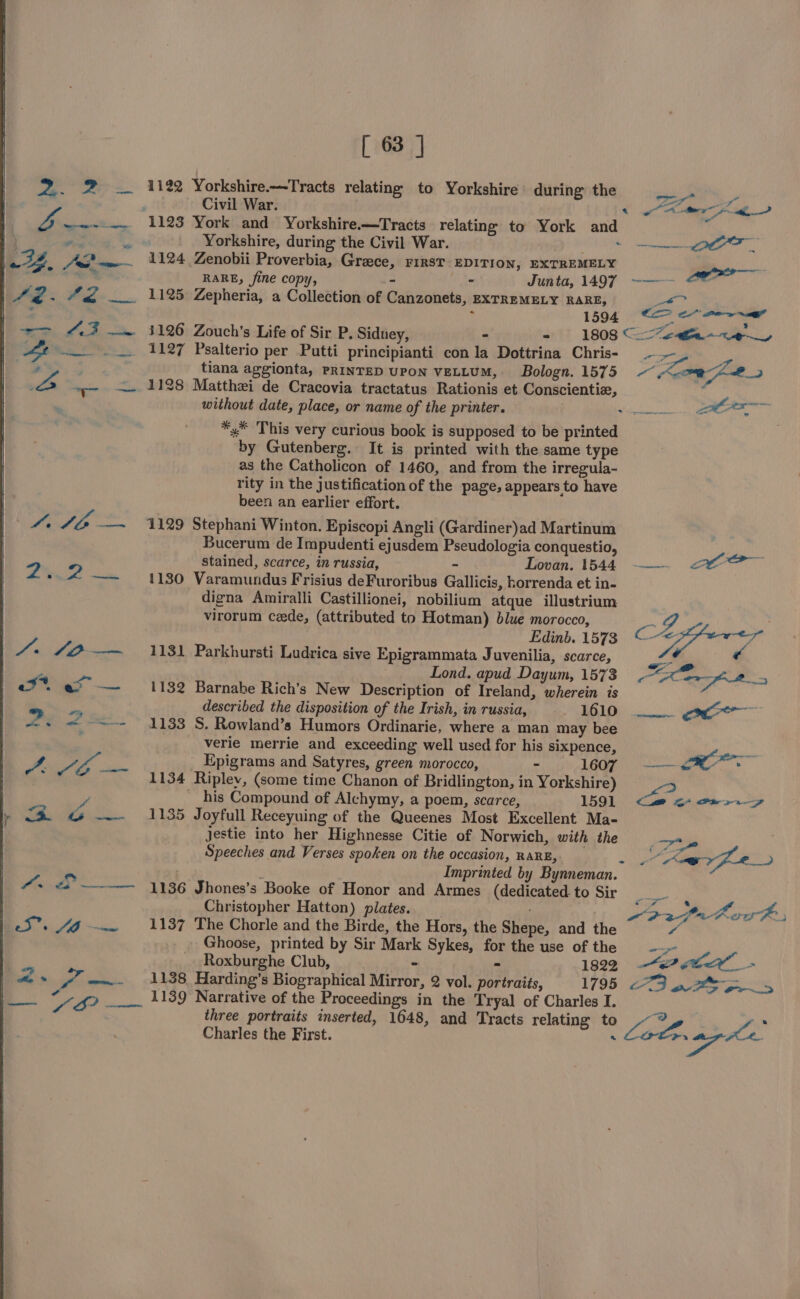 [ 63 ]
2. 2 — 1122 Yorkshire.—Tracts relating to Yorkshire during the
Civil War.
1123 York and Yorkshire.—Tracts relating to York and
Yorkshire, during the Civil War.
1124 Zenobii Proverbia, Græce, FIRST EDITION, EXTREMELY
RARE, fine copy, - - Junta, 1497
12. 12 — 1125 Zepheria, a Collection of Canzonets, EXTREMELY RARE,
1594
— 13 — 1126 Zouch's Life of Sir P. Sidney, - - 1808
1127 Psalterio per Putti principianti con la Dottrina Chris-
tiana aggionta, PRINTED UPON VELLUM, Bologn. 1575
1128 Matthæi de Cracovia tractatus Rationis et Conscientiæ,
without date, place, or name of the printer.
*⁎* This very curious book is supposed to be printed
by Gutenberg. It is printed with the same type
as the Catholicon of 1460, and from the irregula-
rity in the justification of the page, appears to have
been an earlier effort.
1. 16 — 1129 Stephani Winton. Episcopi Angli (Gardiner) ad Martinum
Bucerum de Impudenti ejusdem Pseudologia conquestio,
stained, scarce, in russia, - Lovan. 1544
2. 2 — 1130 Varamundus Frisius deFuroribus Gallicis, horrenda et in-
digna Amiralli Castillionei, nobilium atque illustrium
virorum cæde, (attributed to Hotman) blue morocco,
Edinb. 1573
1. 10 — 1131 Parkhursti Ludrica sive Epigrammata Juvenilia, scarce,
Lond. apud Dayum, 1573
5. 5 — 1132 Barnabe Rich's New Description of Ireland, wherein is
described the disposition of the Irish, in russia, 1610
2. 2 — 1133 S. Rowland's Humors Ordinarie, where a man may bee
verie merrie and exceeding well used for his sixpence,
Epigrams and Satyres, green morocco, - 1607
1. 16 — 1134 Ripley, (some time Chanon of Bridlington, in Yorkshire)
his Compound of Alchymy, a poem, scarce, 1591
3. 6 — 1135 Joyfull Receyuing of the Queenes Most Excellent Ma-
jestie into her Highnesse Citie of Norwich, with the
Speeches and Verses spoken on the occasion, RARE,
Imprinted by Bynneman.
1136 Jhones's Booke of Honor and Armes (dedicated to Sir
Christopher Hatton) plates.
1137 The Chorle and the Birde, the Hors, the Shepe, and the
Ghoose, printed by Sir Mark Sykes, for the use of the
Roxburghe Club, - - 1822
1138 Harding's Biographical Mirror, 2 vol. portraits, 1795
1139 Narrative of the Proceedings in the Tryal of Charles I.
three portraits inserted, 1648, and Tracts relating to
Charles the First.